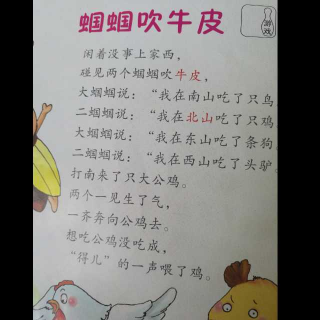 蝈蝈吹牛皮
游戏
闲着没事上家西，
碰见两个蝈蝈吹牛皮，
大蝈蝈说：“我在南山吃了只鸟
二蝈蝈说：“我在北山吃了只鸡
大蝈蝈说：“我在东山吃了条狗
二蝈蝈说：“我在西山吃了头驴
打南来了只大公鸡。
两个一见生了气，
一齐奔向公鸡去。
想吃公鸡没吃成，
“得儿”的一声喂了鸡。